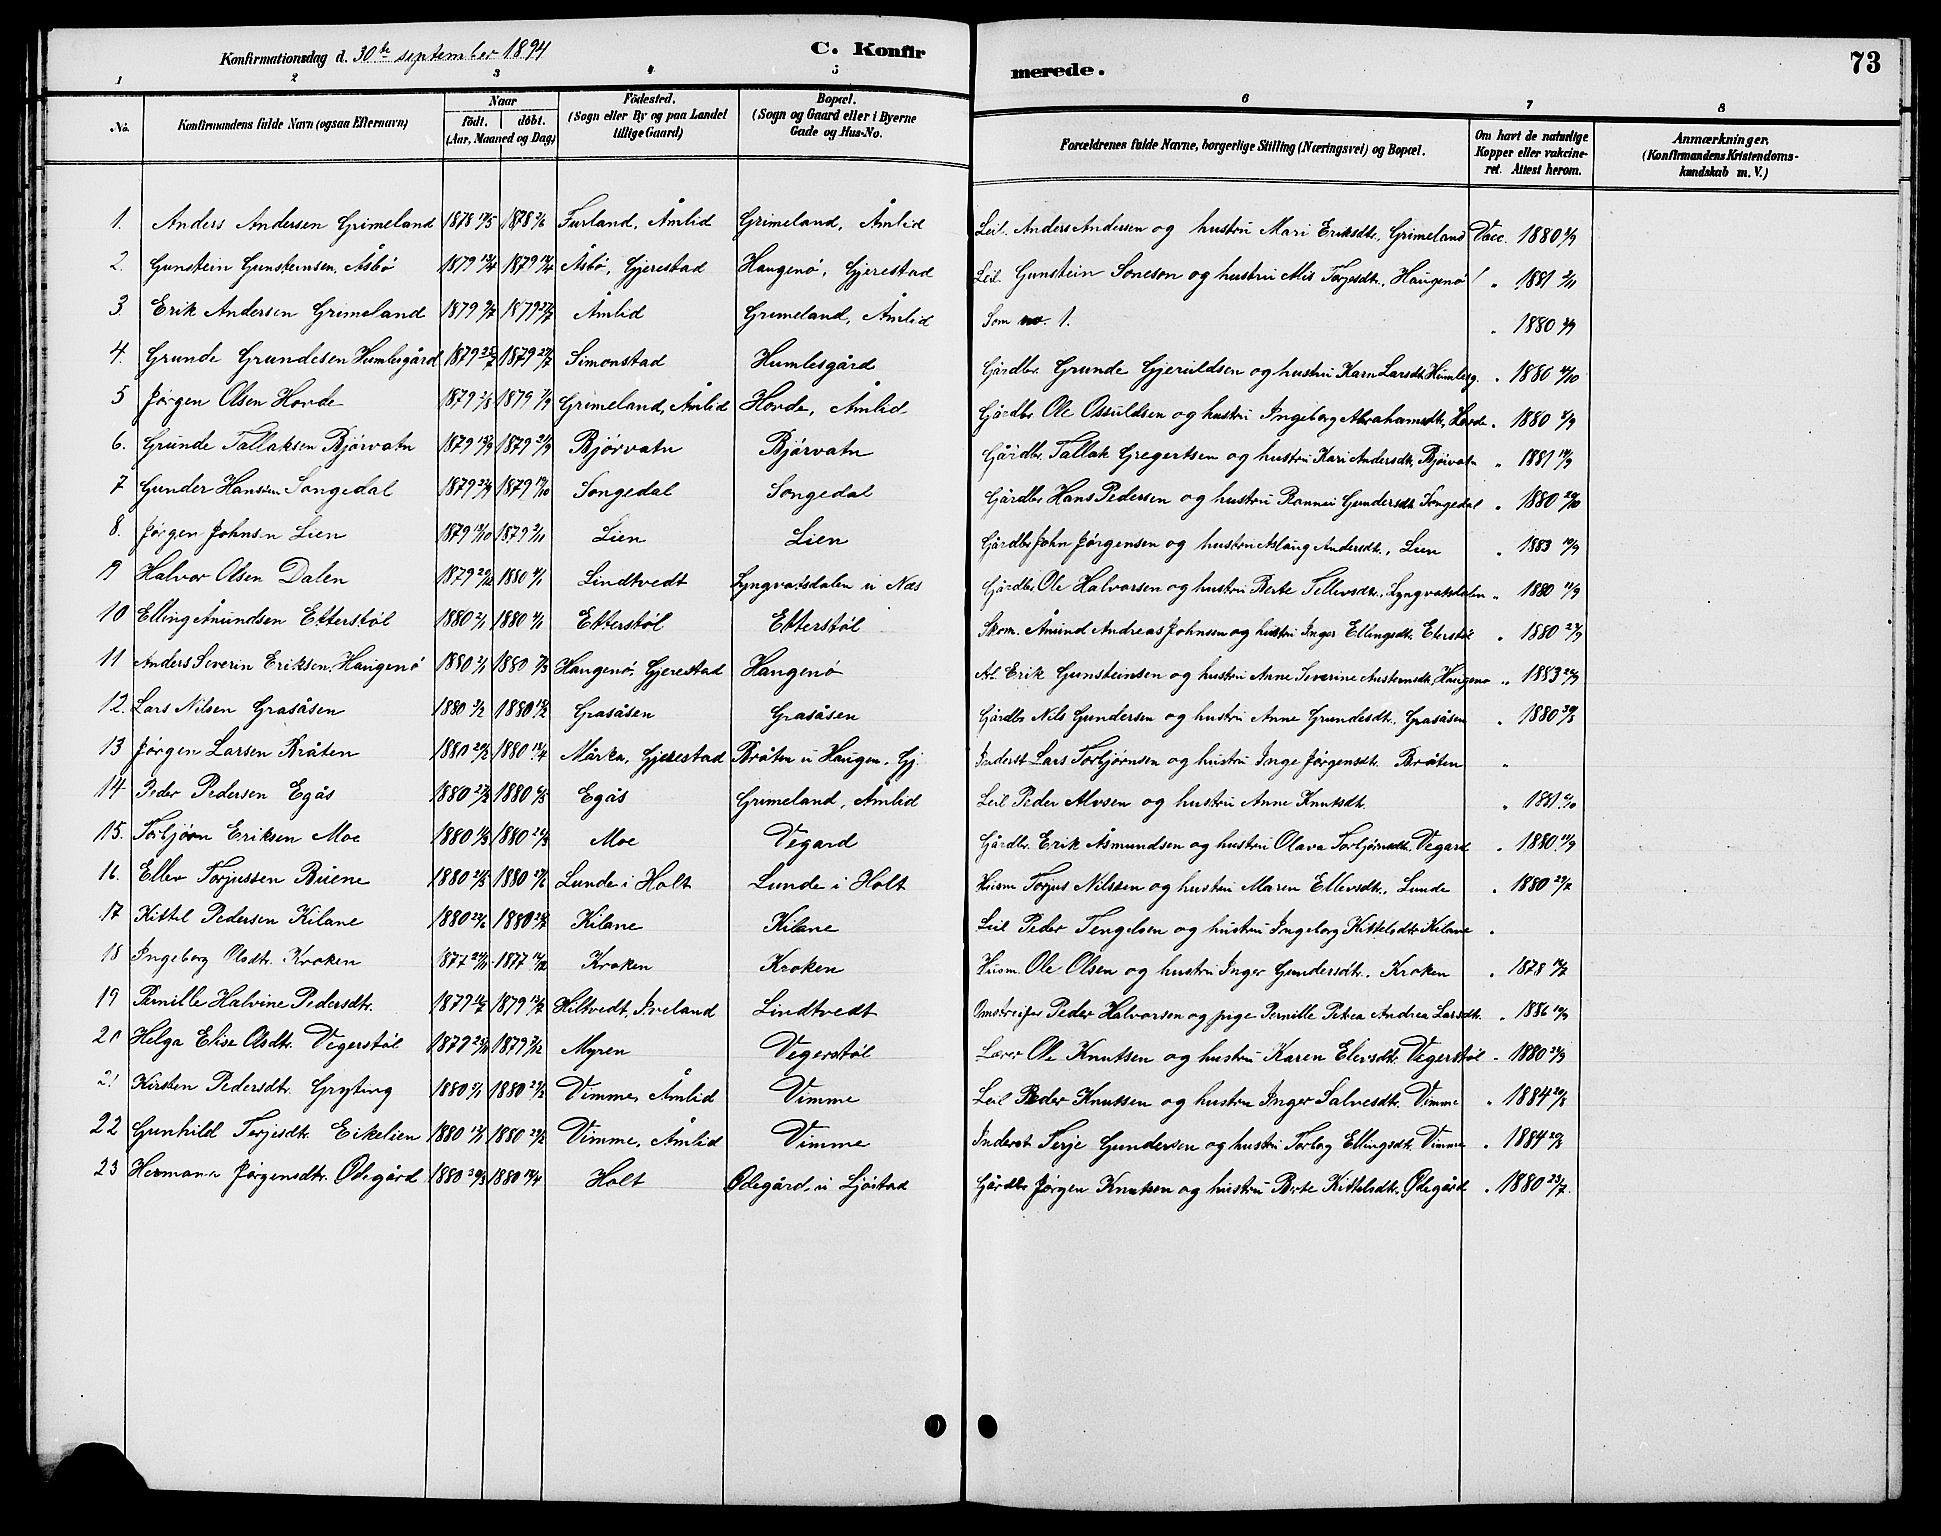 Konfirmationsdag d. 30te september 1894
C. Konfirmerede.
73
1 2 3 4 5 6 7 8
No. Konfirmandens fulde Navn (ogsaa Efternavn) Naar födt. döbt. (Aar, Maaned og Dag) Födested. (Sogn eller By og paa Landet tillige Gaard) Bopæl. (Sogn og Gaard eller i Byerne Gade og Hus-No. Forældrenes fulde Navne, borgerlige Stilling (Næringsvei) og Bopæl. Om havt de naturlige Kopper eller vakcineret. Attest herom. Anmærkninger. (Konfirmandens Kristendomskundskab m. V.)
1. Anders Andersen Grimeland 1878 1878 Furland, Åmlid Grimeland, Åmlid Leil. Anders Andersen og hustru Mari Eriksdtr., Grimeland Vacc. 1880
2. Gunstein Gunsteinsen, Åsbø 1879 1879 Åsbø, Gjerestad Haugenø, Gjerestad Leil. Gunstein Soneson og hustru Alis Torjesdtr., Haugenø " 1881
3 Erik Andersen Grimeland 1879 1879 Åmlid Grimeland, Åmlid Som no. 1. " 1880
4. Grunde Grundesen Humlesgård 1879 1879 Simonstad Humlesgård Gårdbr. Grunde Gjeruldsen og hustru Karn Larsdtr. Humlesg. " 1880
5 Jørgen Olsen Hovde 1879 1879 Grimeland, Åmlid Hovde, Åmlid Gårdbr. Ole Ossuldsen og hustru Ingeborg Abrahamsdtr., Hovde " 1880
6. Grunde Tallaksen Bjørvatn 1879 1879 Bjørvatn Bjørvatn Gårdbr. Tallak Gregertsen og hustru Kari Andersdtr. Bjørvatn " 1881
7 Gunder Hansen Songedal 1879 1879 Songedal Songedal Gårdbr. Hans Pedersen og hustru Rannei Gundersdtr. Songedal " 1880
8. Jørgen Johnsn Lien 1879 1879 Lien Lien Gårdbr. John Jørgensen og hustru Aslaug Andersdtr., Lien " 1883
9 Halvor Olsen Dalen 1879 1880 Lindtvedt Lyngvatsdalen u Næs Gårdbr. Ole Halvorsen og hustru Berte Tellevsdtr., Lyngvatsdalen " 1880
10 Elling Åmundsen Etterstøl 1880 1880 Etterstøl Etterstøl Skom. Åmund Andreas Johnsen og hustru Inger Ellingsdtr. Eterstøl " 1880
11 Anders Severin Eriksen, Haugenø 1880 1880 Haugenø, Gjerestad Haugenø Erik Gunsteinsen og hustru Anne Severine Austensdtr., Haugenø " 1883
12. Lars Nilsen Grasåsen 1880 1880 Grasåsen Grasåsen Gårdbr Nils Gundersen og hustru Anne Grundesdtr., Grasåsen " 1880
13 Jørgen Larsen Bråten 1880 1880 Mårka, Gjerestad Bråten u Haugen, Gj. Inderst Lars Torbjørnsen og hustru Inge Jørgensdtr. Bråten "
14 Peder Pedersen Egås 1880 1880 Egås Grimeland, Åmlid Leil Peder Alvsen og hustru Anne Knutsdtr. " 1881
15. Torbjørn Eriksen Moe 1880 1880 Moe Vegard Gårdbr. Erik Åsmundsen og hustru Olava Torbjørnsdtr. Vegard " 1880
16. Ellev Torjussen Buene 1880 1880 Lunde i Holt Lunde i Holt Husm Torjus Nilssen og hustru Maren Ellevsdtr., Lunde " 1880
17 Kittel Pedersen Kilane 1880 1880 Kilane Kilane Leil Peder Tengelsen og hustru Ingeborg Kittelsdtr. Kilane "
18 Ingeborg Olsdtr. Kroken 1877 1877 Kroken Kroken Husm. Ole Olsen og hustru Inger Gundersdtr., Kroken " 1878
19 Pernille Halvine Pedersdtr. 1879 1879 Hiltvedt, Iveland Lindtvedt Omstreifer Peder Halvorsen og pige Pernille Petrea Andrea Larsdtr. " 1886
20 Helga Elise Olsdtr. Vegerstøl 1879 1879 Myren Vegerstøl Lærer Ole Knutsen og hustru Karen Elevsdtr. Vegerstøl " 1880
21 Kirsten Pedersdtr. Gryting 1880 1880 Vimme, Åmlid Vimme Leil Peder Knutsen og hustru Inger Salvesdtr. Vimme " 1884
22 Gunhild Terjesdtr. Eikelien 1880 1880 Vimme, Åmlid Vimme Inderst Terje Gundersen og hustru Torbog Ellingsdtr. Vimme " 1884
23 Hermane Jørgensdtr. Ødegård 1880 1880 Holt Ødegård, u Ljøstad Gårdbr Jørgen Knutsen og hustru Berte Kittelsdtr., Ødegård " 1880